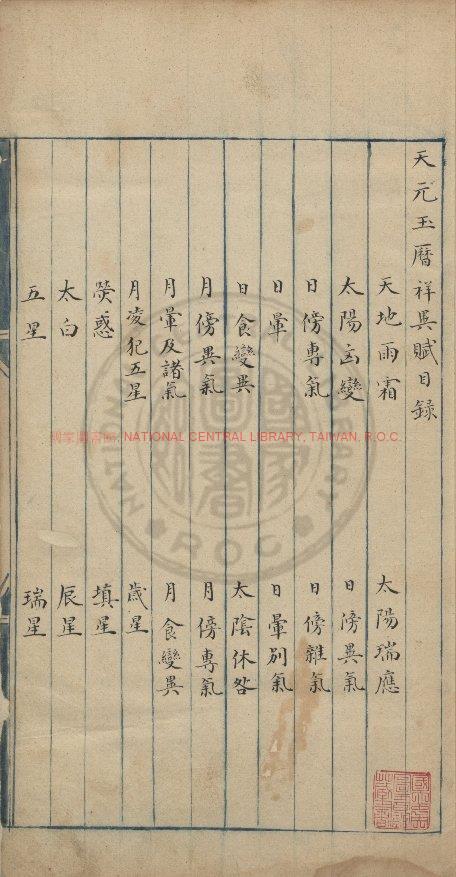 天元玉曆祥異賦目錄
天地雨霜 太陽瑞應
太陽凶變 日傍異氣
日傍專氣 日傍雜氣
日暈 日暈別氣
日食變異 太陰休咎
月傍異氣 月傍專氣
月暈及諸氣 月食變異
月凌犯五星 歲星
熒惑 填星
太白 辰星
五星 瑞星
國家圖書館, NATIONAL CENTRAL LIBRARY, TAIWAN, R.O.C.